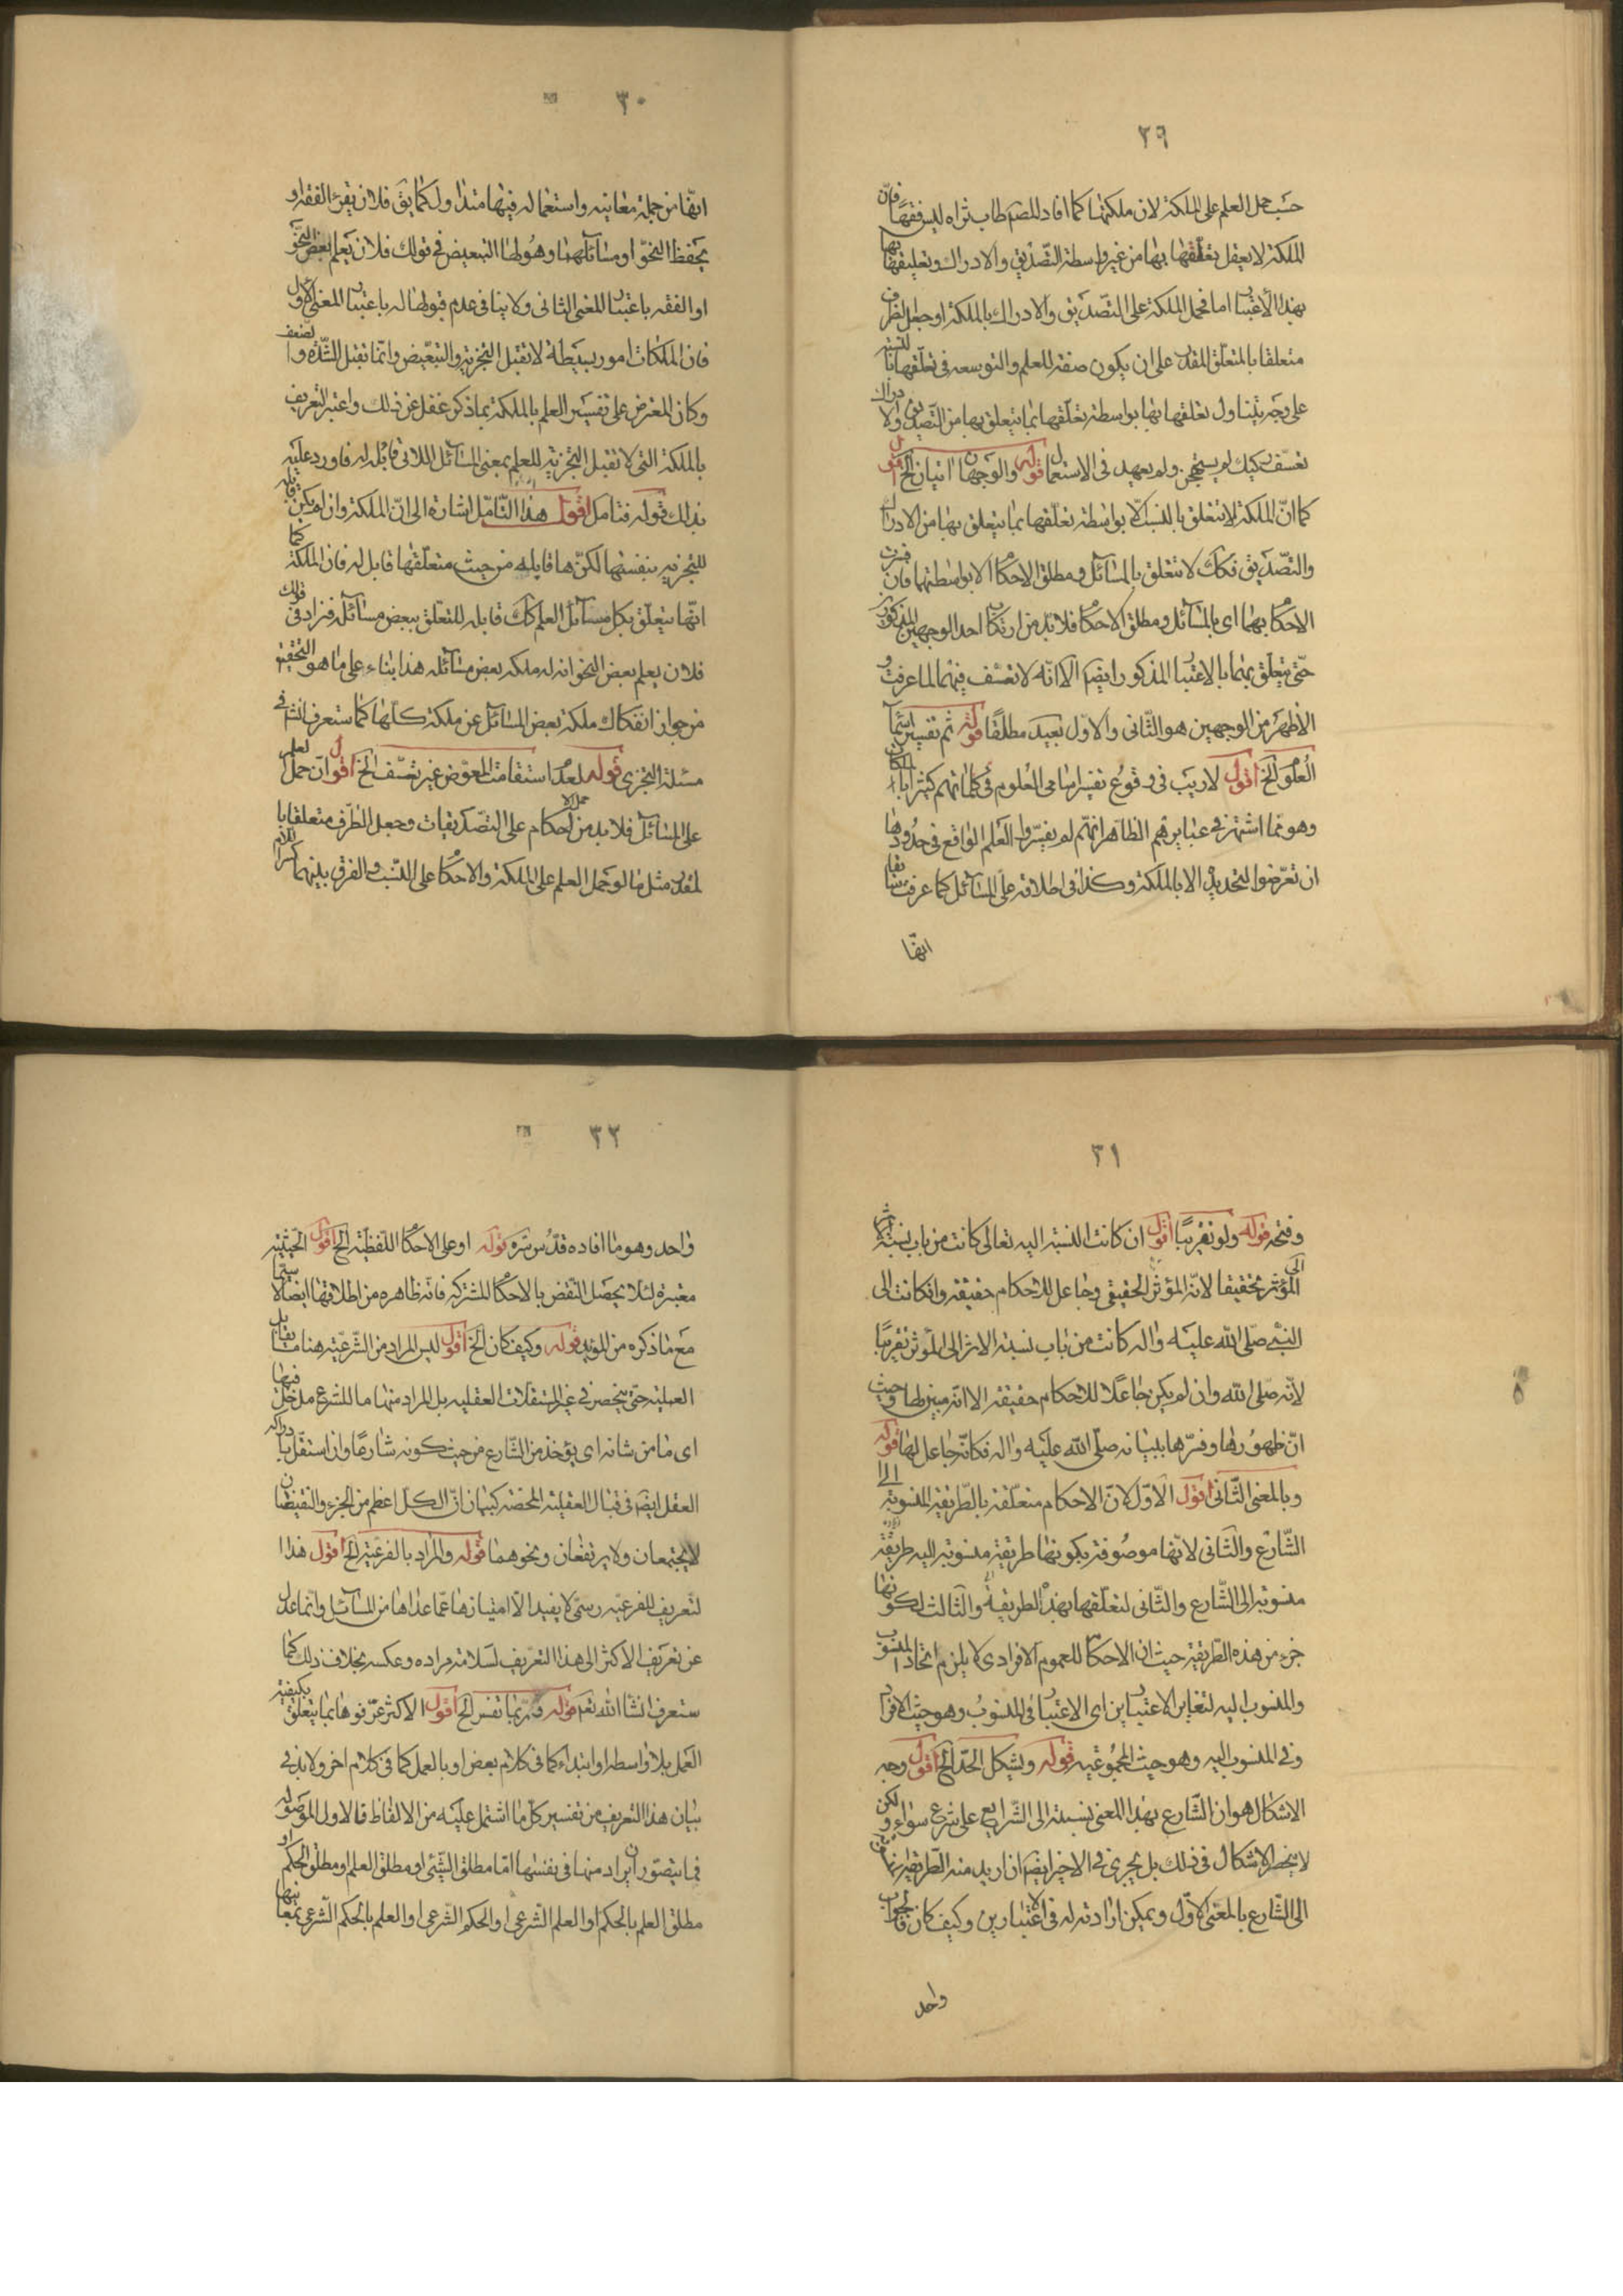 ٢٩
حسب حمل العلم على الملكة لان ملكتها كما افاد المصم طاب ثراه ليس فقها فان
الملكة لا يعقل تعلقها بها من غير واسطة التصديق والادراك وتعليقها بها
بهذا الاعتبار اما فحمل الملكة على التصديق والادراك بالملكة او جعل الظرف
متعلقا بالمتعلق المقدر على ان يكون صفة للعلم والتوسعه فى تعلقها بالنسبة
على وجه يتناول تعلقها بها بواسطة تعلقها بما يتعلق بها من التصديق والادراك
تعسف ركيك لم يستهجن ولم يعهد فى الاستعمال قوله والوجهان اتيان الخ اقول
كما ان الملكة لا تتعلق بالنسب الا بواسطة تعلقها بما يتعلق بها من الادراك
والتصديق فكك لا تتعلق بالمسائل ومطلق الاحكام الا بواسطتهما فان فسرت
الاحكام بهما اى بالمسائل ومطلق الاحكام فلا بد من ارتكاب احد الوجهين المذكورين
حتى يتعلق بهما بالاعتبار المذكور ايضم الا انه لا تعسف فيهما لما عرفت و
الاظهر من الوجهين هو الثانى والاول بعيد مطلقا قوله ثم تفسير اسماء
العلوم الخ اقول لا ريب فى وقوع تفسير اسامى العلوم فى كلماتهم كثيرا بالملكات
وهو مما اشتهر فى عبايرهم الظاهر انهم لم يفسروا العلم الواقع فى حدودها
ان تعرضوا لتحديده الا بالملكة وكذا فى اطلاقه على المسائل كما عرفت سابقا
انها
٣٠
انها من جملة معانيه واستعماله فيها متداول كما يق فلان يقرء الفقه او
يحفظ النحو او مسائلهما وهو لها التبعيض فى قولك فلان يعلم بعض النحو
او الفقه باعتبار المعنى الثانى ولا ينافى عدم قبولها له باعتبار المعنى الاول
فان الملكات امور بسيطة لا تقبل التجزية والتبعيض وانما تقبل الشدة والضعف
وكان المعترض على تفسير العلم بالملكة بما ذكر غفل عن ذلك واعتبر التعريف
بالملكة التى لا تقبل التجزية للعلم بمعنى المسائل اللاتى قابله له فاورد عليه
بذلك قوله فتامل اقول هذا التامل اشارة الى ان الملكة وان لم يكن قابلة
للتجزيه بنفسها لكنها قابله من حيث متعلقها قابل له فان الملكة كما
انها يتعلق بكل مسائل العلم كك قابله للتعلق ببعض مسائله فزاد فى قولك
فلان يعلم بعض النحو انه له ملكه بعض مسائله هذا بناء على ما هو التحقيق
من جواز انفكاك ملكة بعض المسائل عن ملكة كلها كما ستعرف انشا فى
مسئلة التجزى قوله لعدم استقامت المعوض غير تعسف الخ اقول ان حمل العلم
على المسائل فلا بد من حمل الاحكام على التصديقات وجعل الظرف متعلقا با
لمقدر مثل ما لو حمل العلم على الملكة والاحكام على النسب والفرق بينهما
٣١
وفتحه قوله ولو تقريبا اقول ان كانت النسبة اليه تعالى كانت من باب نسبة الاثر
الى المؤثر تحقيقا لانه المؤثر الحقيقى وجاعل للاحكام حقيقه وان كانت الى
النبى صلى الله عليه واله كانت من باب نسبة الاثر الى المؤثر تقريبا
لانه صلى الله وان لم يكن جاعلا للاحكام حقيقة الا انه مبين لها وحيث
ان ظهورها وفسرها ببيانه صلى الله عليه واله فكانه جاعل لها قوله
وبالمعنى الثانى اقول الاول لان الاحكام متعلقة بالطريقة المنسوبة الى
الشارع والثانى لانها موصوفة بكونها طريقة منسوبة اليه طريقة
منسوبة الى الشارع والثانى لتعلقها بهذه الطريقة والثالث لكونها
جزء من هذه الطريقة حيث ان الاحكام للعموم الافرادى لا يلزم اتحاد المنسوب
والمنسوب اليه لتغاير الاعتبارين اى الاعتبار فى المنسوب وهو حيث الافراد
وفى المنسوب اليه وهو حيث المجموعيه قوله ويشكل الحد الخ اقول وجه
الاشكال هو ان الشارع بهذا المعنى نسبة الى الشرايع على شرع سواء ولكن
لا يخطر الاشكال فى ذلك بل يجرى فى الاخير ايضم ان اريد منه الطريقة
الى الشارع بالمعنى الاول ويمكن ارادته له فى الاعتبارين وكيف كان فالجواب
واحد
٣٢
واحد وهو ما افاده قدس سره قوله او على الاحكام اللفظية الخ اقول الحيثية
معتبرة لئلا يحصل النقض بالاحكام المشتركه فانه ظاهره من اطلاقها ايضا لا سيما
مع ما ذكره من المؤيد قوله وكيف كان الخ اقول ليس المراد من الشرعيه هنا ما يقابل
العمليه حتى ينحصر فى غير المستقلات العقليه بل المراد منها ما للشرع مدخل فيها
اى ما من شانه اى يؤخذ من الشارع من حيث كونه شارعا وان استقل بادراكه
العقل ايضم فى قبال العقلية المحضه كبيان ان الكل اعظم من الجزء والنقيضان
لا يجتمعان ولا يرتفعان ونحوهما قوله والمراد بالفرعية الخ اقول هذا
لتعريف للفرعيه رسمى لا يفيد الا امتيازها عما عداها من المسائل وانما عدل
عن تعريف الاكثر الى هذا التعريف لسلامة مراده وعكسه بخلاف ذلك كما
ستعرف انشا الله تعم قوله وربما تفسر الخ اقول الاكثر عرفوها بما يتعلق بكيفية
العمل بلا واسطه او ابتداء كما فى كلام بعض او بالعمل كما فى كلام اخر ولا بد فى
بيان هذا التعريف من تفسير كل ما اشتمل عليه من الالفاظ فالاول الموصوله
فما يتصور ان يراد منها فى نفسها اما مطلق الشيئ او مطلق العلم او مطلق الحكم او
مطلق العلم بالحكم او العلم الشرعى او الحكم الشرعى او العلم بالحكم الشرعى